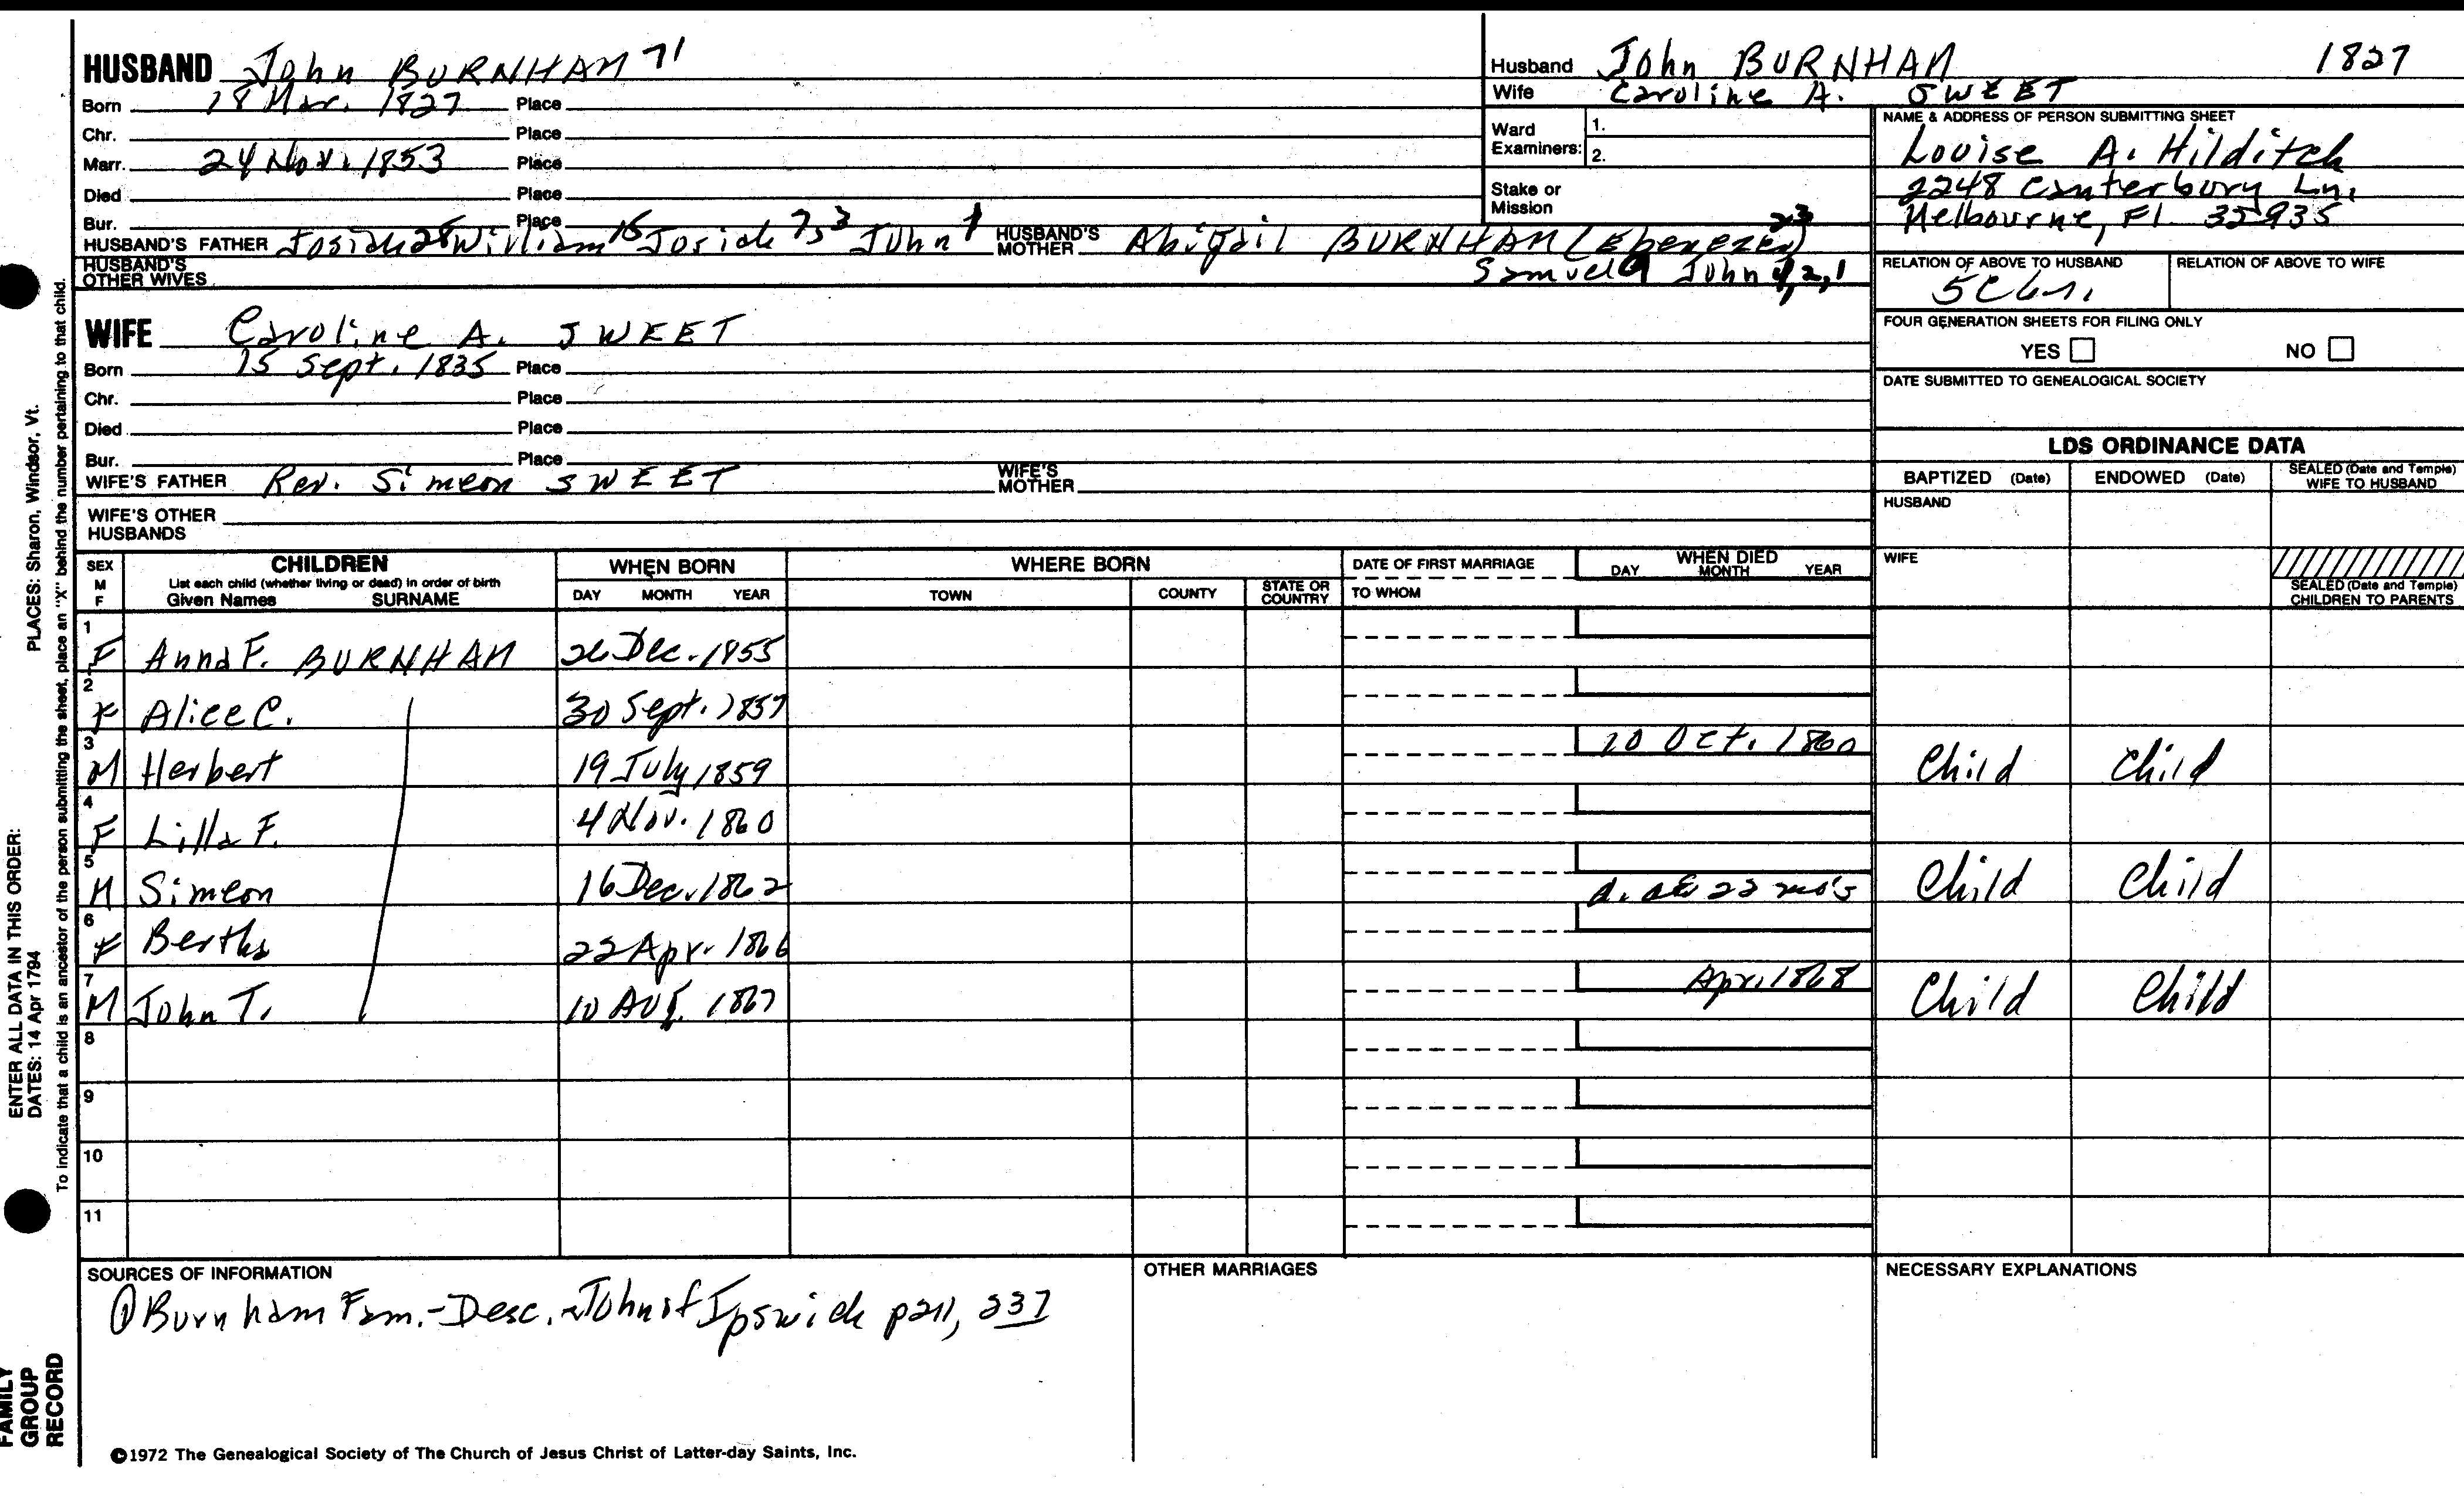 HUSBAND John BURNHAM 71
Born 18 Mar. 1827 Place
Chr. Place
Marr. 24 Nov. 1853 Place
Died Place
Bur. Place
HUSBAND'S FATHER Josiah 28 William 15 Josiah 7,3 John 1 HUSBAND'S MOTHER Abigail BURNHAM (Ebenezer) 23
HUSBAND'S OTHER WIVES Samuel 9 John 4,2,1
WIFE Caroline A. SWEET
Born 15 Sept. 1835 Place
Chr. Place
Died Place
Bur. Place
WIFE'S FATHER Rev. Simeon SWEET WIFE'S MOTHER
WIFE'S OTHER HUSBANDS
Husband John BURNHAM 1827
Wife Caroline A. SWEET
Ward Examiners: 1.
2.
Stake or Mission
NAME & ADDRESS OF PERSON SUBMITTING SHEET
Louise A. Hilditch
2248 Canterbury Ln.
Melbourne, Fl. 32935
RELATION OF ABOVE TO HUSBAND RELATION OF ABOVE TO WIFE
FOUR GENERATION SHEETS FOR FILING ONLY
YES NO
DATE SUBMITTED TO GENEALOGICAL SOCIETY
LDS ORDINANCE DATA
BAPTIZED (Date) ENDOWED (Date) SEALED (Date and Temple) WIFE TO HUSBAND
HUSBAND
WIFE
SEALED (Date and Temple) CHILDREN TO PARENTS
SEX M F CHILDREN List each child (whether living or dead) in order of birth Given Names SURNAME WHEN BORN DAY MONTH YEAR WHERE BORN TOWN COUNTY STATE OR COUNTRY DATE OF FIRST MARRIAGE TO WHOM WHEN DIED DAY MONTH YEAR
1 F Anna F. BURNHAM 26 Dec. 1855
2 F Alice C. 30 Sept. 1857
3 M Herbert 19 July 1859 10 Oct. 1860 Child Child
4 F Lilla F. 4 Nov. 1860
5 M Simeon 16 Dec. 1862 d. ae 22 mo's Child Child
6 F Bertha 22 Apr. 1866
7 M John T. 10 Aug. 1867 Apr. 1868 Child Child
8
9
10
11
SOURCES OF INFORMATION
① Burnham Fam. - Desc. John of Ipswich p 211, 237
OTHER MARRIAGES
NECESSARY EXPLANATIONS
©1972 The Genealogical Society of The Church of Jesus Christ of Latter-day Saints, Inc.
PLACES: Sharon, Windsor, Vt.
ENTER ALL DATA IN THIS ORDER:
DATES: 14 Apr 1794
To indicate that a child is an ancestor of the person submitting the sheet, place an "X" behind the number pertaining to that child.
FAMILY GROUP RECORD